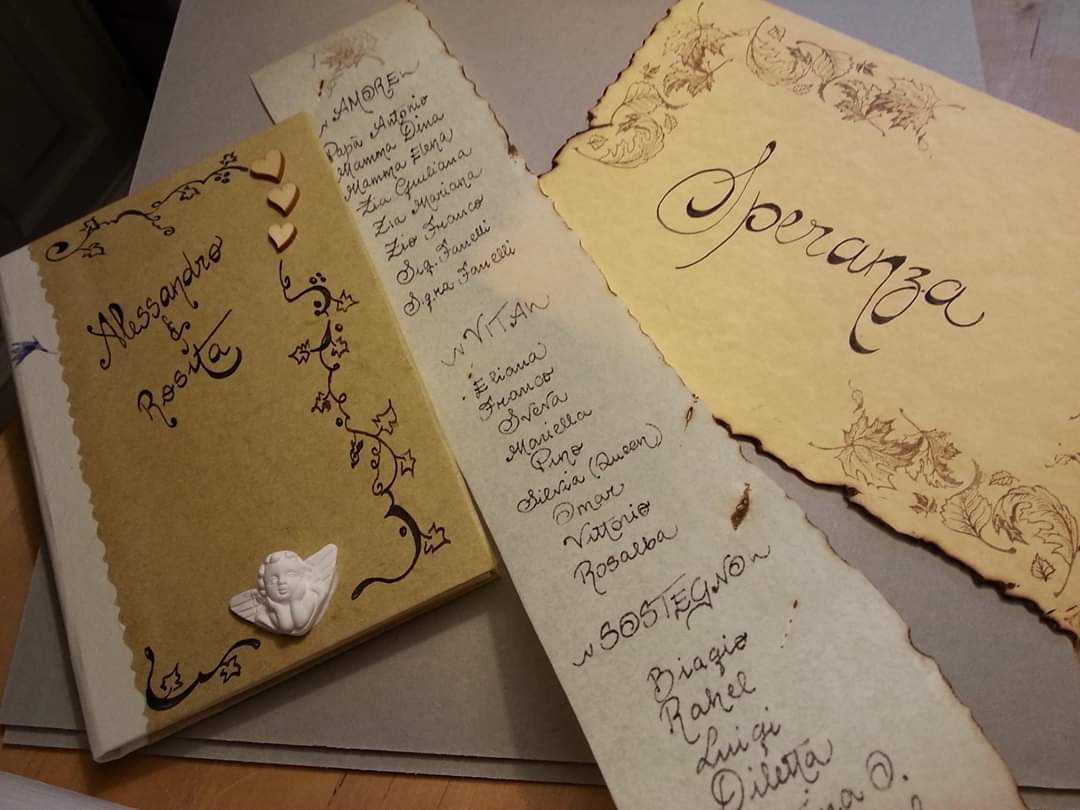 Alessandro
&
Rosita
~AMORE~
Papà Antonio
Mamma Dina
Mamma Elena
Zia Giuliana
Zia Mariana
Zio Franco
Sig. Fanelli
Sig.ra Fanelli
~VITA~
Eliana
Franco
Sveva
Mariella
Pino
Silvia (Queen)
Omar
Vittorio
Rosalba
~SOSTEGNO~
Biagio
Rahel
Luigi
Diletta
O.
Speranza